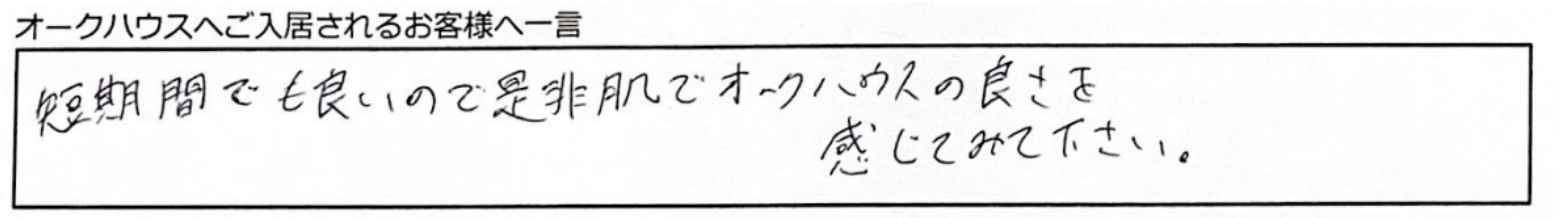 オークハウスへご入居されるお客様へ一言
短期間でも良いので是非肌でオークハウスの良さを
感じてみて下さい。